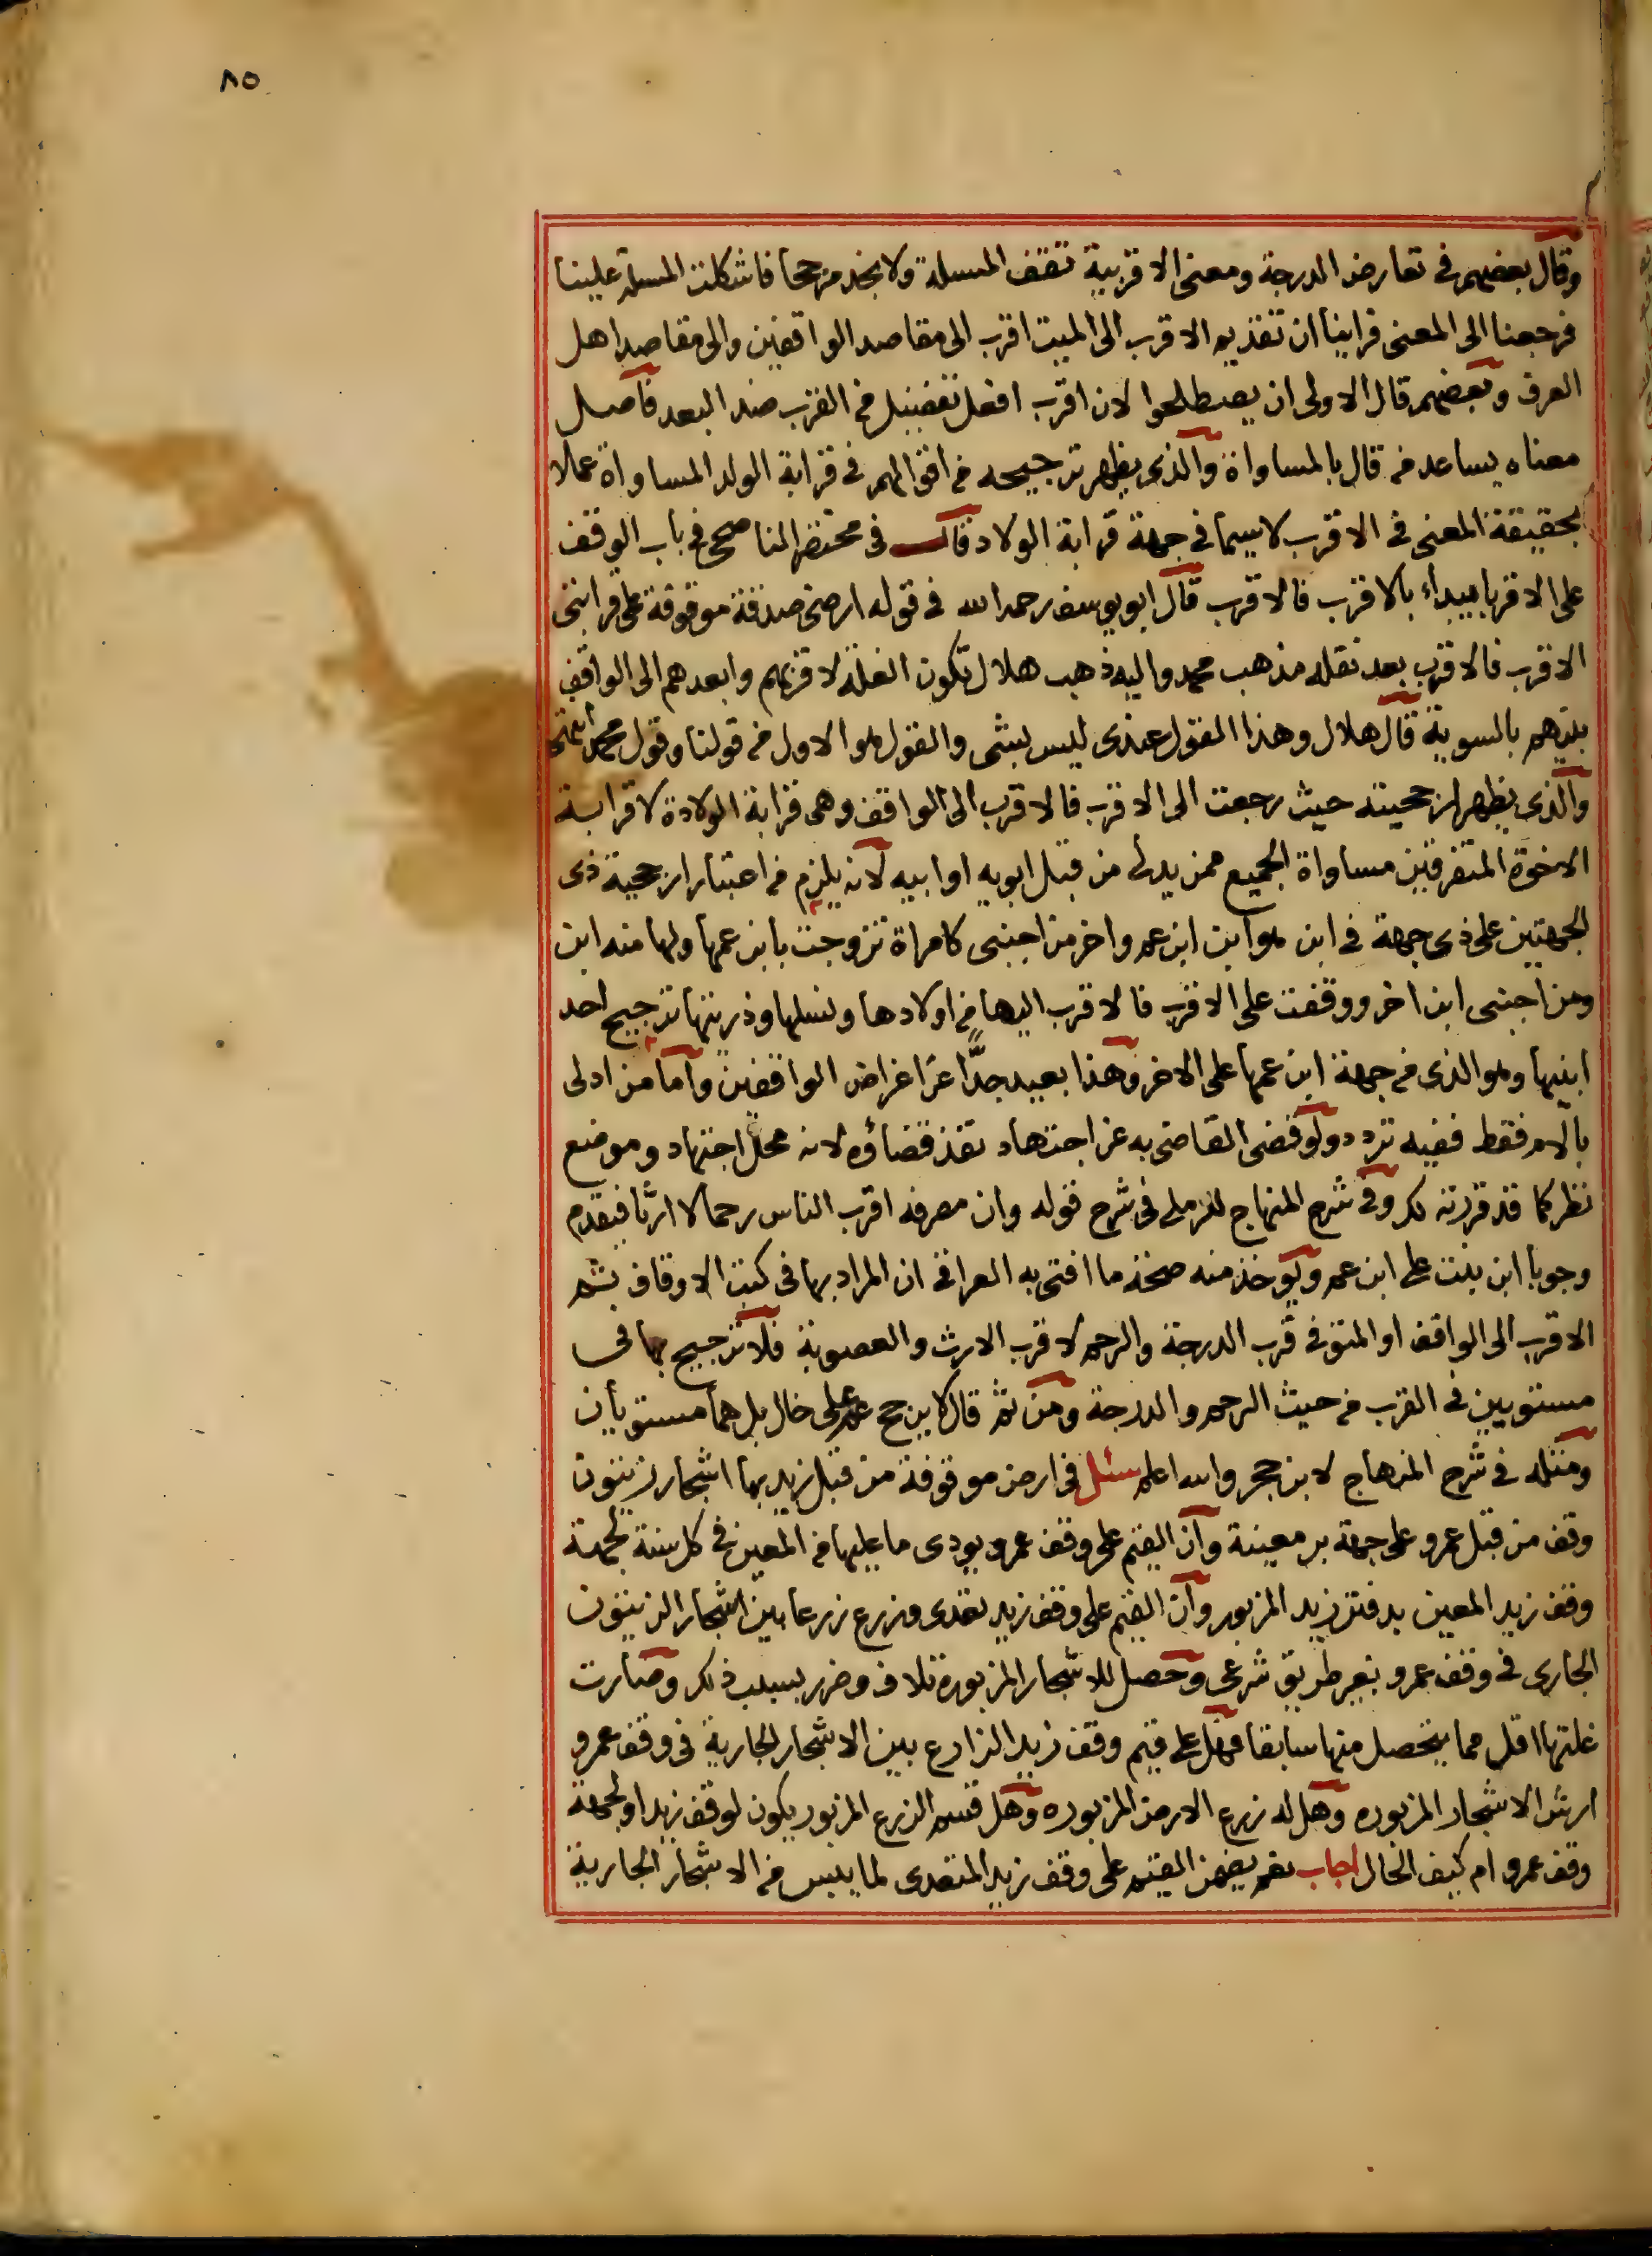 ٨٥
وقال بعضهم في تعارض الدرجة ومعنى الاقربية تقف المسلة ولا نجد مرجحا فاشكلت المسلة علينا
فرجعنا الى المعنى فراينا ان تقديم الاقرب الى الميت اقرب الى مقاصد الواقفين والى مقاصد اهل
العرف وبعضهم قال الاولى ان يصطلحوا لان اقرب افعل تفضيل من القرب ضد البعد فاصل
معناه يساعد من قال بالمساواة والذي يظهر ترجيحه من اقوالهم في قرابة الولد المساواة عملا
بحقيقة المعنى في الاقرب لاسيما في جهة قرابة الولاد قال في مختصر الناصحي في باب الوقف
على الاقربا يبداء بالاقرب فالاقرب قال ابو يوسف رحمه الله في قوله ارضي صدقة موقوفة على قرابتي
الاقرب فالاقرب بعد نقله مذهب محمد واليه ذهب هلال تكون الغلة لاقربهم وابعدهم الى الواقف
بينهم بالسوية قال هلال وهذا القول عندى ليس بشى والقول هو الاول من قولنا وقول محمد انتهى
والذي يظهر ارجحيته حيث رجعت الى الاقرب فالاقرب الى الواقف وهى قرابة الولادة لا قرابة
الاخوة المتفرقين مساواة الجميع ممن يدلى من قبل ابويه او ابيه لانه يلزم من اعتبار ارجحية ذى
الجهتين على ذى جهة في ابن هو ابن ابن عم واخر من اجنبى كامراة تزوجت بابن عمها ولها منه ابن
ومن اجنبى ابن اخر ووقفت على الاقرب فالاقرب اليها من اولادها ونسلها وذريتها ترجيح احد
ابنيها وهو الذى من جهة ابن عمها على الاخر وهذا بعيد جدًّا عن اغراض الواقفين واما من ادلى
بالام فقط ففيه تردد ولو قضى القاضى به عن اجتهاد نفذ قضاؤه لانه محل اجتهاد وموضع
نظر كما قد قررته لك وفي شرح المنهاج للرملي في شرح قوله وان مصرفه اقرب الناس رحما لا ارثا فيقدم
وجوبا ابن بنت على ابن عم ويوخذ منه صحة ما افتى به العراقي ان المراد بها في كتب الاوقاف بثم
الاقرب الى الواقف او المتوفى قرب الدرجة والرحم لا قرب الارث والعصوبة فلا ترجيح بها في
مستويين في القرب من حيث الرحم والدرجة ومن ثم قال لا يرجح عم على خال بل هما مستويان
ومثله في شرح المنهاج لابن حجر والله اعلم سئل في ارض موقوفة من قبل زيد بها اشجار زيتون
وقف من قبل عمرو على جهة بر معينة وان القيم على وقف عمرو يودى ما عليها من المعين في كل سنة لجهة
وقف زيد المعين بدفتر زيد المزبور وان القيم على وقف زيد تعدى وزرع زرعا بين اشجار الزيتون
الجارى في وقف عمرو بغير طريق شرعى وحصل للاشجار المزبورة تلاف وضرر بسبب ذلك وصارت
غلتها اقل مما يتحصل منها سابقا فهل على قيم وقف زيد الزارع بين الاشجار الجارية في وقف عمرو
ارش الاشجار المزبوره وهل له زرع الارض المزبوره وهل قسم الزرع المزبور يكون لوقف زيد او لجهة
وقف عمرو ام كيف الحال اجاب نعم يضمن القيم على وقف زيد المتعدى لما يبس من الاشجار الجارية